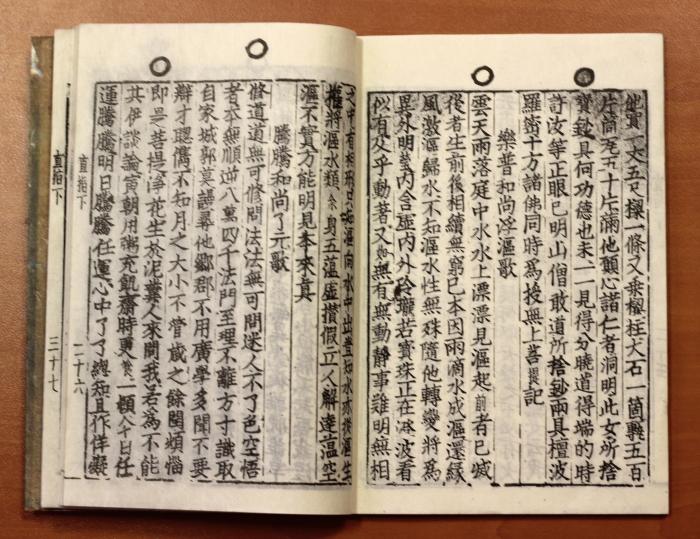 他買一大五尺樑一條又乘橙柱大石一箇甎五百
片筒瓦五十片滿他願心諸仁者洞明此女所捨
寶鈔具何功德也未一一見得分曉道得端的時
許汝等正眼已明山僧敢道所捨鈔兩具檀波
羅密十方諸佛同時為授無上菩提記
樂普和尚浮漚歌
雲天雨落庭中水水上漂漂見漚起前者已滅
後者生前後相續無窮已本因雨滴水成漚還緣
風激漚歸水不知漚水性無殊隨他轉變將為
異外明瑩內含虛內外玲瓏若寶珠正在澄波看
似有及乎動著又如無有無動靜事難明無相
之中有相形只知漚向水中出豈知水亦從漚生
權將漚水類余身五蘊虛攢假立人解達蘊空
漚不實方能明見本來真
騰騰和尚了元歌
修道道無可修問法法無可問迷人不了色空悟
者本無順逆八萬四千法門至理不離方寸識取
自家城郭莫謾尋他鄉郡不用廣學多聞不要
辯才聰儁不知月之大小不管歲之餘閏煩惱
即是菩提淨花生於泥糞人來問我若為不能
共伊談論寅朝用粥充飢齋時更餐一頓今日任
運騰騰明日騰騰任運心中了了總知且作佯癡
直指下 二十六
直指下 三十七